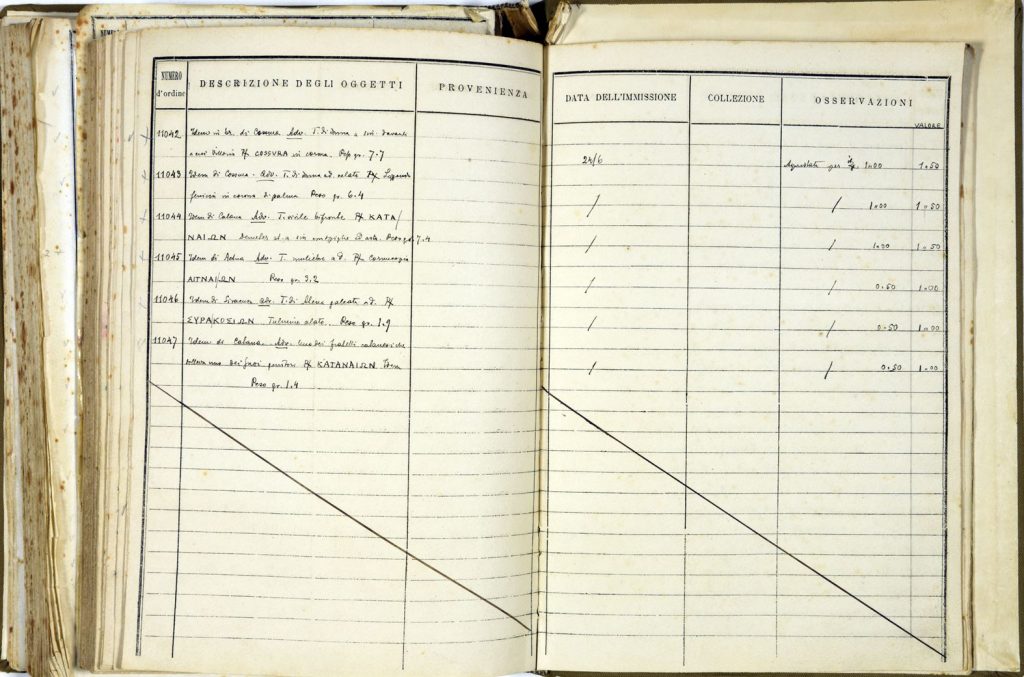 NUMERO d'ordine DESCRIZIONE DEGLI OGGETTI PROVENIENZA DATA DELL'IMMISSIONE COLLEZIONE OSSERVAZIONI
VALORE
11042 Idem in br. di Cossura Adv. T. di donna a sin. davanti
a cui Vittoria R/ COSSURA in corona. Peso gr. 7.7 24/6 Acquistata per 1=00 1=50
11043 Idem di Cossura. Adv. T. di donna a d. velata R/ Leggenda
fenicia in corona di palma Peso gr. 6.4 / / 1=00 1=50
11044 Idem di Catana Adv. T. virile bifronte R/ ΚΑΤΑ/
ΝΑΙΩΝ Demeter st. a sin con spighe ed asta. Peso gr. 7.4 / / 1=00 1=50
11045 Idem di Aetna Adv. T. muliebre a d. R/ Cornucopia
ΑΙΤΝΑ/ΩΝ Peso gr. 3.2 / / 0=50 1=00
11046 Idem di Siracusa Adv. T. di Atena galeata a d. R/
ΣΥΡΑΚΟΣΙΩΝ Fulmine alato. Peso gr. 1.9 / / 0=50 1=00
11047 Idem di Catana. Adv. Uno dei fratelli catanesi che
uno dei suoi genitori R/ ΚΑΤΑΝΑΙΩΝ Idem / / 0=50 1=00
Peso gr. 1.4